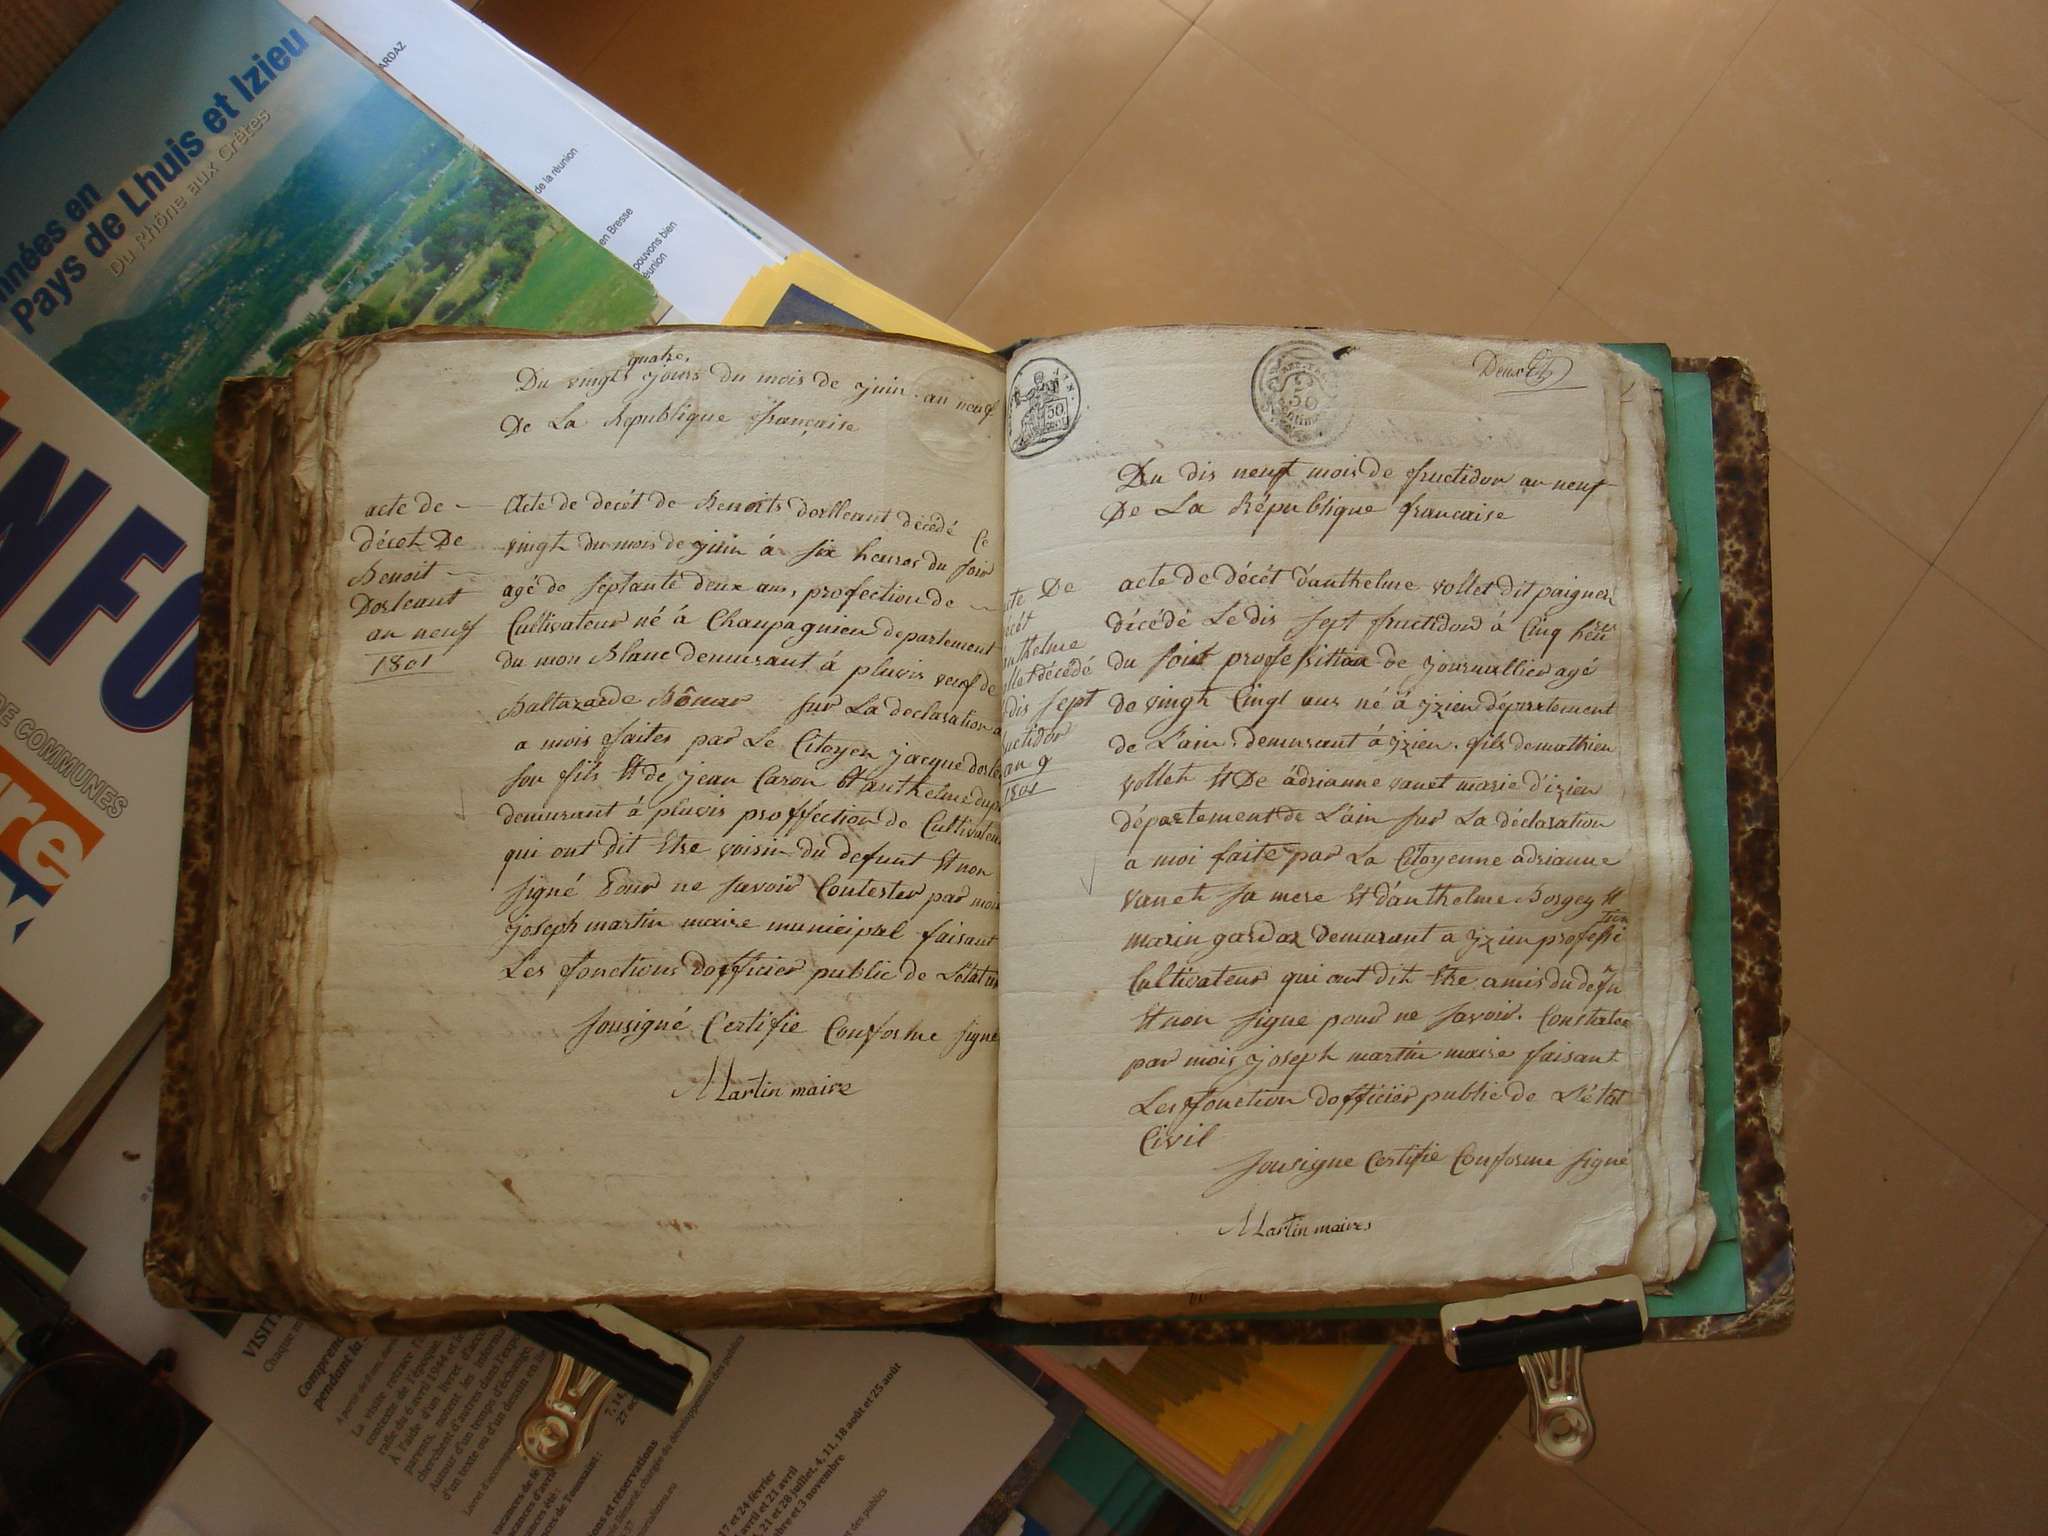 nnées en
Pays de Lhuis et Izieu
Du Rhône aux Crêtes
ARDAZ
de la réunion
en Bresse
pouvons bien
éunion
NFO
DE COMMUNES
quatre,
Du vingts jours du mois de juin. an neuf
De La République française
acte de
décet De
Benoit
Dorleant
an neuf
1801
Acte de decét de Benoits dorlleant décédé Ce
vingh du mois de juin à six heures du soir
agé de septante deux ans, profection de
Cultivateur né à Champagnieu departement
du mon Blanc demurant à pluvis veuf de
Baltazarde Bônar sur La declaration a
a mois faites par Le Citoyen jacque dorle
son fils Et de jean Caron Et anthelme dup
demurant à pluvis proffection de Cultivateur
qui ont dit Etre voisin du defunt Et non
signé Pour ne savoir Contester par mois
joseph martin maire municipal faisant
Les fonctions dofficier public de L'état
sousigné Certifie Conforme signé
Martin maire
50
50
Deux Et
Du dis neuf mois de fructidor an neuf
De La République francaise
acte De
décét
anthelme
vollet décédé
dis sept
fructidor
an 9
1801
acte de décét d'anthelme vollet dit paigner
décédé Le dis sept fructidor à Cinq heures
du soir profession de journallier agé
de vingh Cingt ans né à jzieu département
de L'ain. demurant à jzieu. fils de mathieu
vollet Et De adrianne vanet marie d'izieu
département de L'ain sur La déclaration
a moi faite par La Citoyenne adrianne
vaneh sa mere Et d'anthelme Borgey Et
marin gardaz demurant a jzieu professi
tion
Cultivateur qui ont dit Etre amis du defu
Et non signe pour ne savoir. Constater
par mois joseph martin maire faisant
Les fonction dofficier public de L'état
Civil
sousigne Certifie Conforme signé
Martin maires
VISIT
Chaque
Compren
pendant la
contexte de l'époque
rafle du 6 avril 1944 et
À l'aide d'un livret d'acc
parents, notent les inform
cherchent d'autres dans l'exp
Autour d'un temps d'échange,
d'un texte ou d'un dessin en
7, 14,
27 oc
chargée du développement des publics
ons et réservations
17 et 24 février
avril et 21 avril
21 et 28 juillet, 4, 11, 18 août et 25 août
bre et 3 novembre
ces de Toussaint :